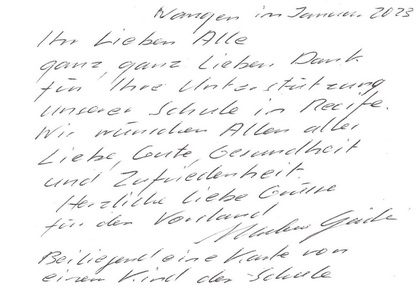 Wangen im Januar 2023
Ihr Lieben Alle
ganz, ganz Lieben Dank
für Ihre Unterstützung
unserer Schule in Recife.
Wir wünschen Allen alles
Liebe, Gute, Gesundheit
und Zufriedenheit.
Herzliche Liebe Grüsse
für den Vorstand
Beiliegend eine Karte von
einem Kind der Schule